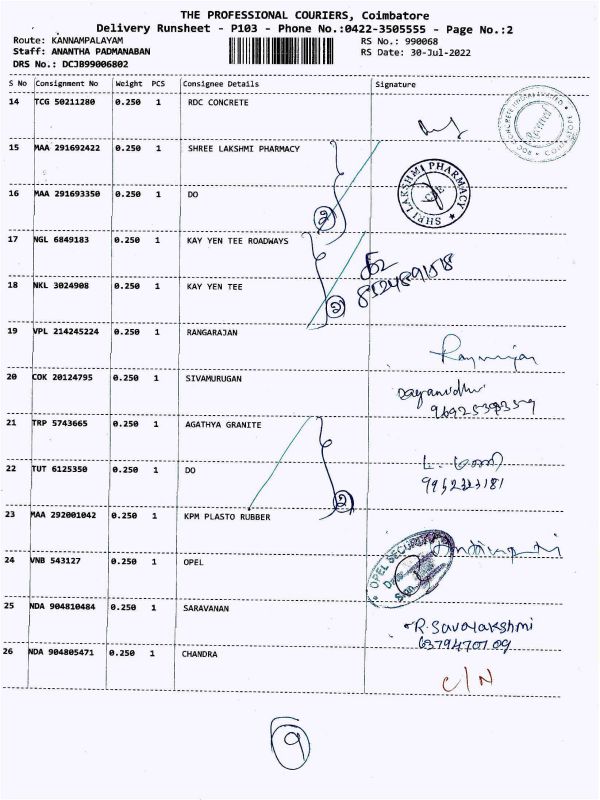 THE PROFESSIONAL COURIERS, Coimbatore
Delivery Runsheet - P103 - Phone No.:0422-3505555 - Page No.:2
Route: KANNAMPALAYAM RS No.: 990068
Staff: ANANTHA PADMANABAN RS Date: 30-Jul-2022
DRS No.: DCJB99006802
S No Consignment No Weight PCS Consignee Details Signature
14 TCG 50211280 0.250 1 RDC CONCRETE
15 MAA 291692422 0.250 1 SHREE LAKSHMI PHARMACY
16 MAA 291693350 0.250 1 DO
SHRI LAKSHMI PHARMACY
CBE
2
17 NGL 6849183 0.250 1 KAY YEN TEE ROADWAYS
18 NKL 3024908 0.250 1 KAY YEN TEE
2
19 VPL 214245224 0.250 1 RANGARAJAN
20 COK 20124795 0.250 1 SIVAMURUGAN
21 TRP 5743665 0.250 1 AGATHYA GRANITE
22 TUT 6125350 0.250 1 DO
2
23 MAA 292001042 0.250 1 KPM PLASTO RUBBER
24 VNB 543127 0.250 1 OPEL
OPEL SECURITY
25 NDA 904810484 0.250 1 SARAVANAN
R. Savalakshmi
6379470709
26 NDA 904805471 0.250 1 CHANDRA
C/N
9